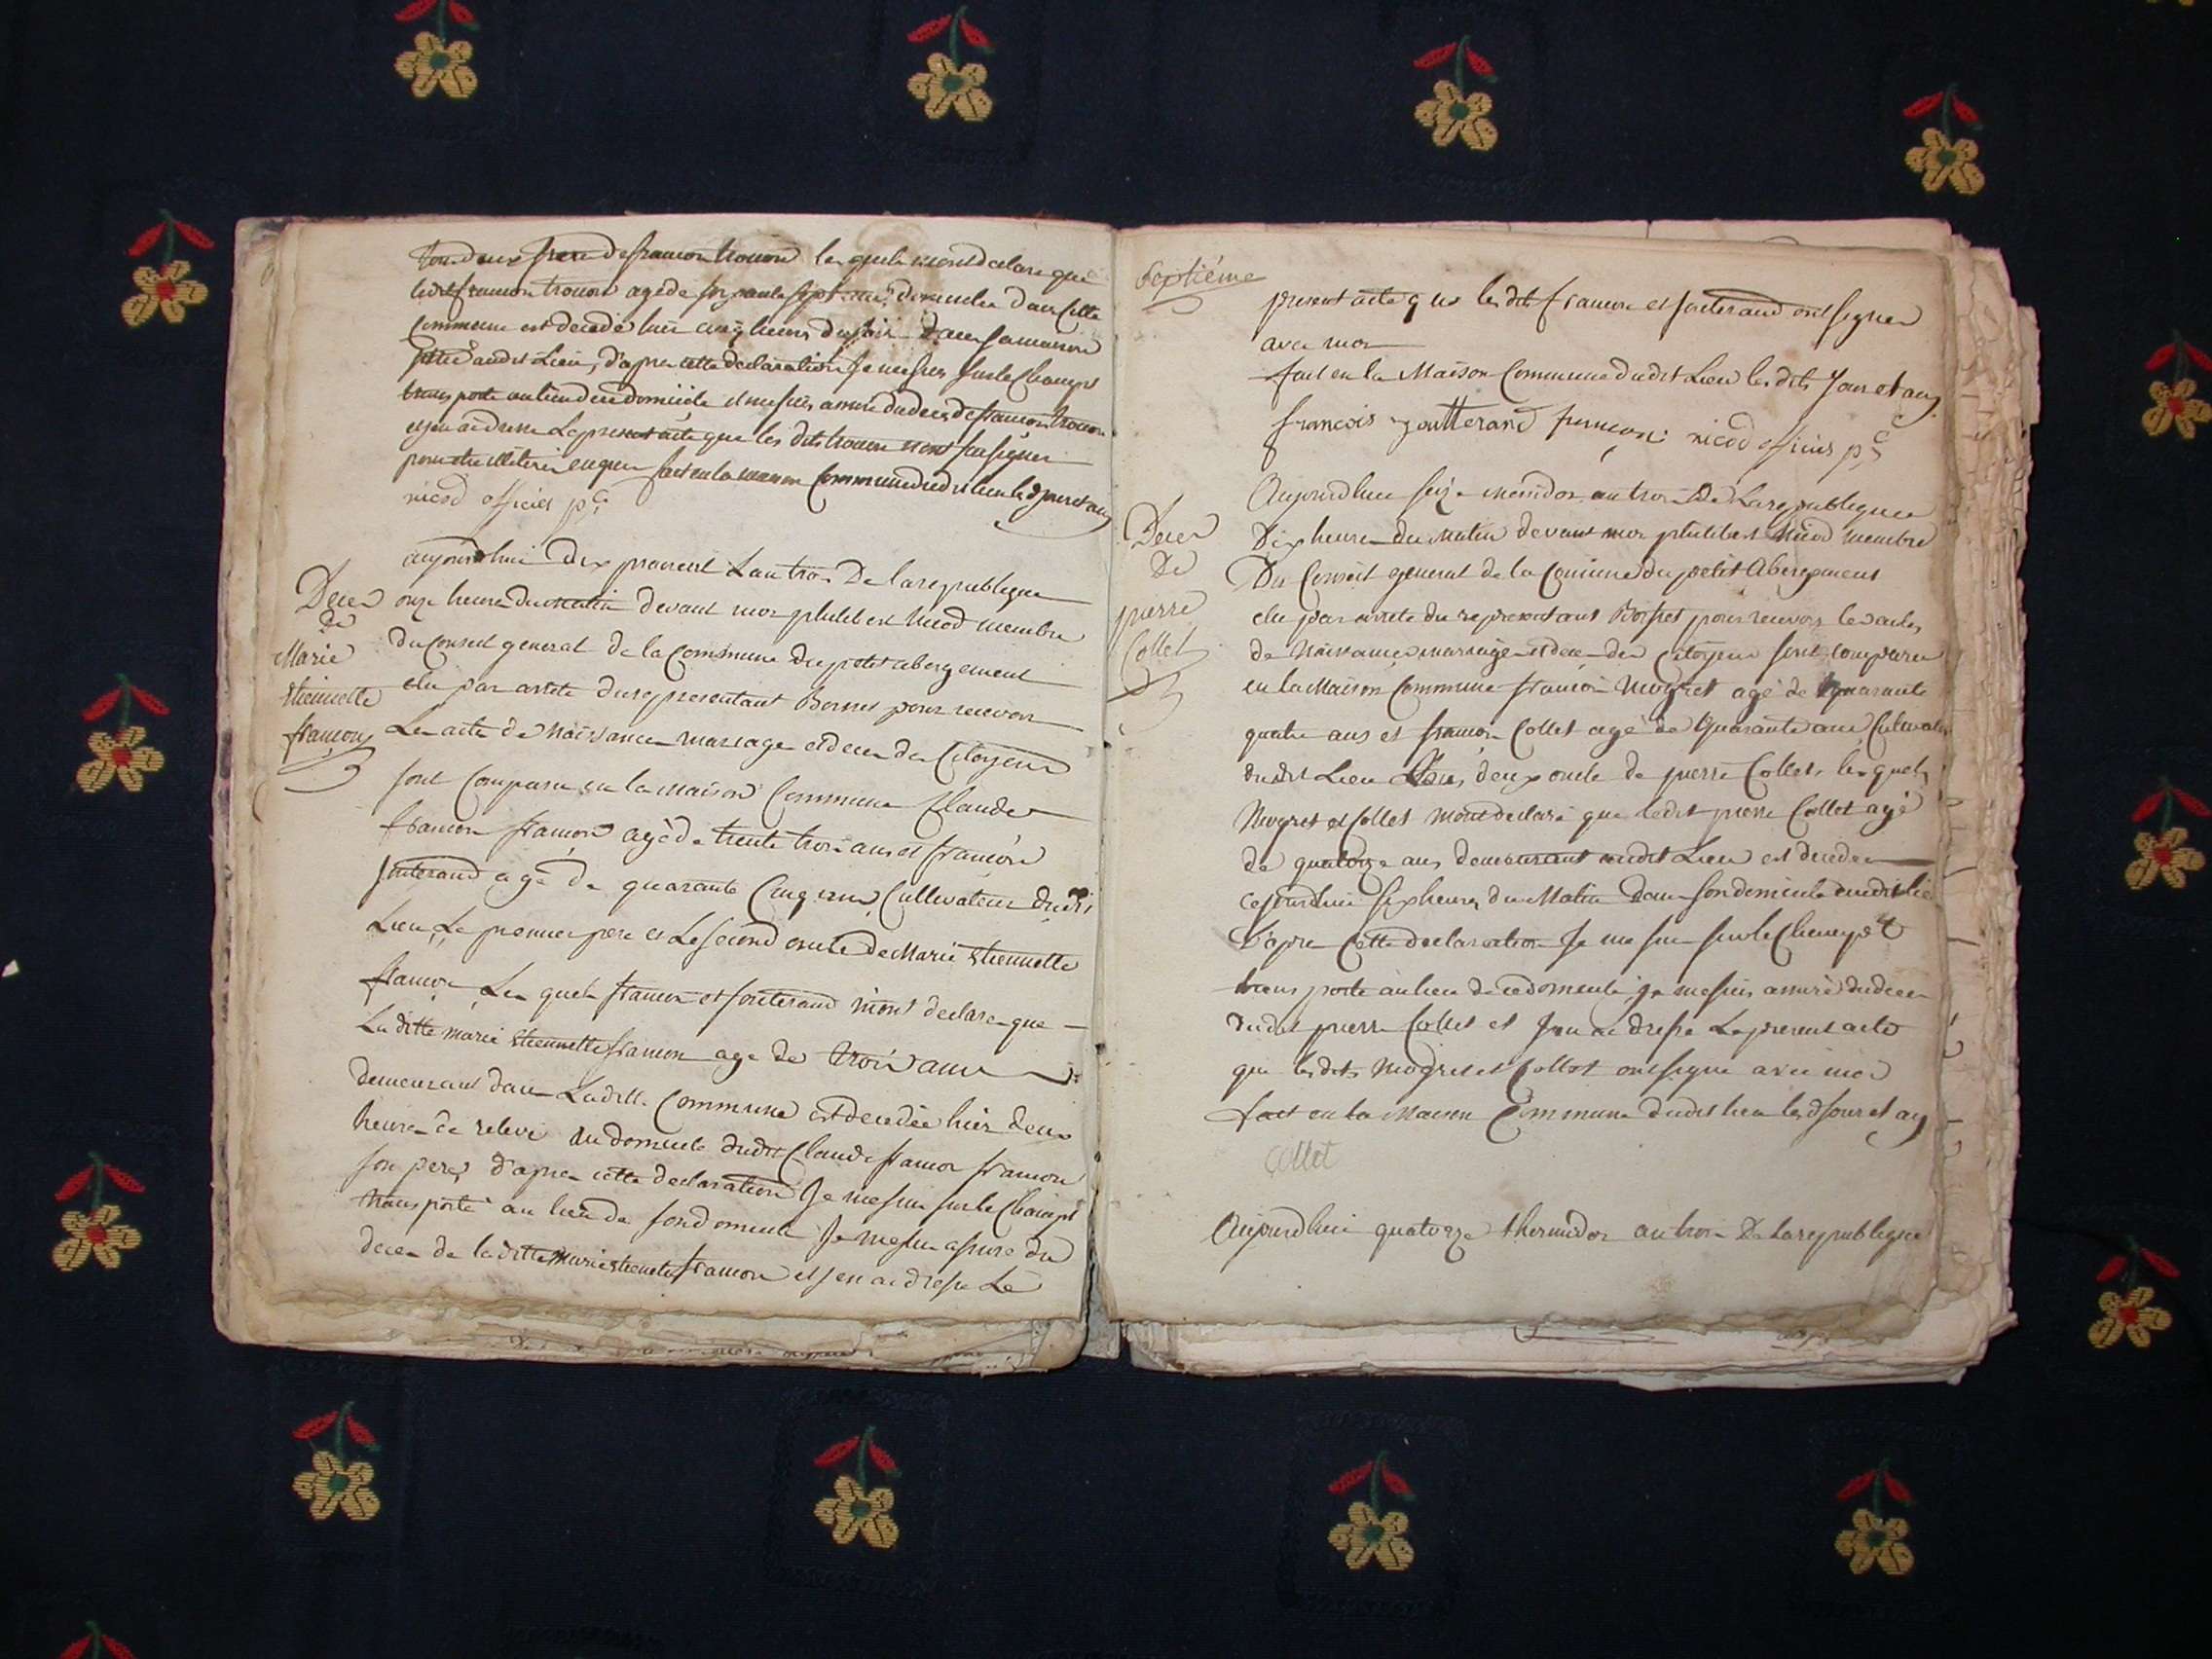 tous deux frere de francois trouon les quels mont declare que
ledit francois trouon age de soixante sept ans demeulin dans cette
commune est decede hier cinq heures du soir dans sa maison
audit Lieu, d'apres cette declaration Je me suis sur le Champs
transporte au lieu de ce domicile et me suis assure du deces de francois trouon
et jen ai dresse Le present acte que les dits trouon nont su signer
fait en la maison Commune dudit lieu les dits jour et an
nicod officier p.c
aujourdhui dix prairial Lan trois De la republique
onze heures du matin devant moi philibert Nicod membre
Deces
de
Marie
Etiennette
françois
du Conseil general de la Commune du petit abergement
elu par arrete du representant Boisset pour recevoir
Les actes de Naissances mariages et deces des Citoyens
sont Comparu en la Maison Commune Claude
francois françois agé de trente trois ans et françois
jouterand agé de quarante Cinq ans Cultivateur dudit
Lieu, Le premier pere et Le second oncle de Marie Etiennette
françois Les quels francois et jouterand mont declare que
La ditte marie Etiennette francois age de trois ans
demeurant dans Laditte Commune est decedée hier deux
heures de relevé au domicile dudit Claude francois francois
son pere, d'apres cette declaration Je me suis sur le Champs
transporté au lieu de son domicile Je me suis assure du
deces de laditte Marie Etiennette francois et jen ai dresse Le
Septiéme
present acte que les dits francois et jouterand ont signer
avec moi
fait en la Maison Commune dudit Lieu les dits Jour et an
francois goutterand françois nicod officier p.c
Aujourdhui seize messidor an trois De La republique
Deces
De
pierre
Collet
Dix heures du Matin devant moi philibert Nicod membre
Du Conseil general de la Comune du petit Abergement
elu par arrete du representant Boisset pour recevoir les actes
de Naissances mariages et deces des Citoyens sont comparu
en la Maison Commune francois Mogret agé de quarante
quatre ans et francois Collet agé de Quarante ans Cultivateur
dudit Lieu tous deux oncle de pierre Collet, les quels
Mogret et Collet mont declaré que ledit pierre Collet agé
de quatorze ans demeurant audit Lieu est decede
cejourdhui six heures du Matin Dans son domicile audit lie
D'apres Cette declaration Je me suis sur le Champ
transporté au lieu de ce domicile je me suis assuré du deces
dudit pierre Collet et Jen ai dresse Le present acte
que lesdits Mogret et Collet ont signe avec moi
fait en la Maison Commune dudit lieu les d jour et an
collet
Aujourdhui quatorze thermidor an trois De La republique